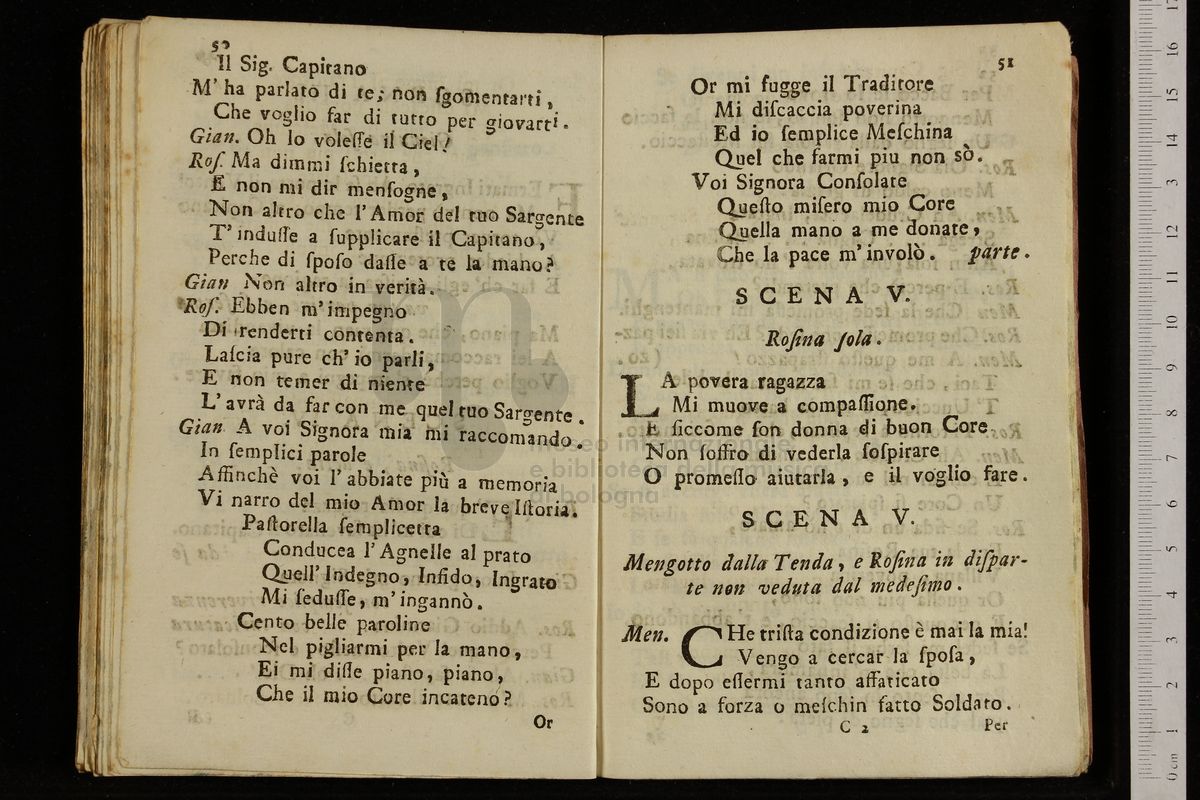 50
Il Sig. Capitano
M' ha parlato di te; non ſgomentarti,
Che voglio far di tutto per giovarti.
Gian. Oh lo voleſſe il Ciel!
Roſ. Ma dimmi ſchietta,
E non mi dir menſogne,
Non altro che l'Amor del tuo Sargente
T' induſſe a ſupplicare il Capitano,
Perche di ſpoſo daſſe a te la mano?
Gian Non altro in verità.
Roſ. Ebben m' impegno
Di renderti contenta.
Laſcia pure ch' io parli,
E non temer di niente
L' avrà da far con me quel tuo Sargente.
Gian A voi Signora mia mi raccomando.
In ſemplici parole
Affinchè voi l' abbiate più a memoria
Vi narro del mio Amor la breve Iſtoria.
Paſtorella ſemplicetta
Conducea l' Agnelle al prato
Quell' Indegno, Infido, Ingrato
Mi ſeduſſe, m' ingannò.
Cento belle paroline
Nel pigliarmi per la mano,
Ei mi diſſe piano, piano,
Che il mio Core incatenó?
Or
51
Or mi fugge il Traditore
Mi diſcaccia poverina
Ed io ſemplice Meſchina
Quel che farmi piu non sò.
Voi Signora Conſolate
Queſto miſero mio Core
Quella mano a me donate,
Che la pace m' involò. parte.
SCENA V.
Roſina ſola.
LA povera ragazza
Mi muove a compaſſione.
E ſiccome ſon donna di buon Core
Non ſoffro di vederla ſoſpirare
O promeſſo aiutarla, e il voglio fare.
SCENA V.
Mengotto dalla Tenda, e Roſina in diſpar-
te non veduta dal medeſimo.
Men. CHe triſta condizione è mai la mia!
Vengo a cercar la ſpoſa,
E dopo eſſermi tanto affaticato
Sono a forza o meſchin fatto Soldato.
C 2
Per
museo internazionale
e biblioteca della musica
di bologna